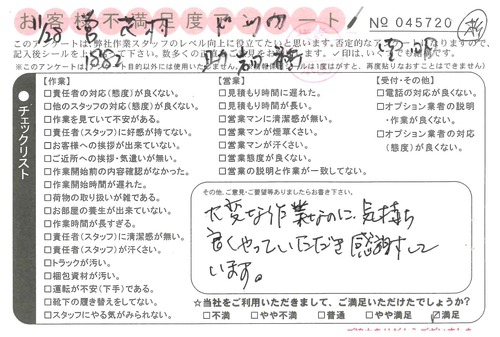 お客様不満足度アンケート
No 045720
このアンケートは、弊社作業スタッフのレベル向上に役立てたいと思います。否定的なアンケートになりますので、
1/28
1882
チェックリスト
【作業】
□責任者の対応(態度)が良くない。
□他のスタッフの対応(態度)が良くない。
□作業を見ていて不安がある。
□責任者(スタッフ)に好感が持てない。
□お客様への挨拶が出来ていない。
□ご近所への挨拶・気遣いが無い。
□作業開始前の内容確認がなかった。
□作業開始時間が遅れた。
□荷物の取り扱いが雑である。
□お部屋の養生が出来ていない。
□作業時間が長すぎる。
□責任者(スタッフ)に清潔感が無い。
□責任者(スタッフ)が汗くさい。
□トラックが汚い。
□梱包資材が汚い。
□運転が不安(下手)である。
□靴下の履き替えをしてない。
□スタッフにやる気がみられない。
【営業】
□見積もり時間に遅れた。
□見積もり時間が長い。
□営業マンに清潔感が無い。
□営業マンが煙草くさい。
□営業マンが汗くさい。
□営業態度が良くない。
□営業の説明と作業が一致してない。
【受付・その他】
□電話の対応が良くない。
□オプション業者の説明
・作業が良くない。
□オプション業者の対応
(態度)が良くない。
その他、ご意見・ご要望等ありましたらお書き下さい。
大変な作業なのに、気持ち
良くやっていただき感謝して
います。
☆当社をご利用いただきまして、ご満足いただけたでしょうか?
□不満 □やや不満 □普通 □やや満足 ☑満足